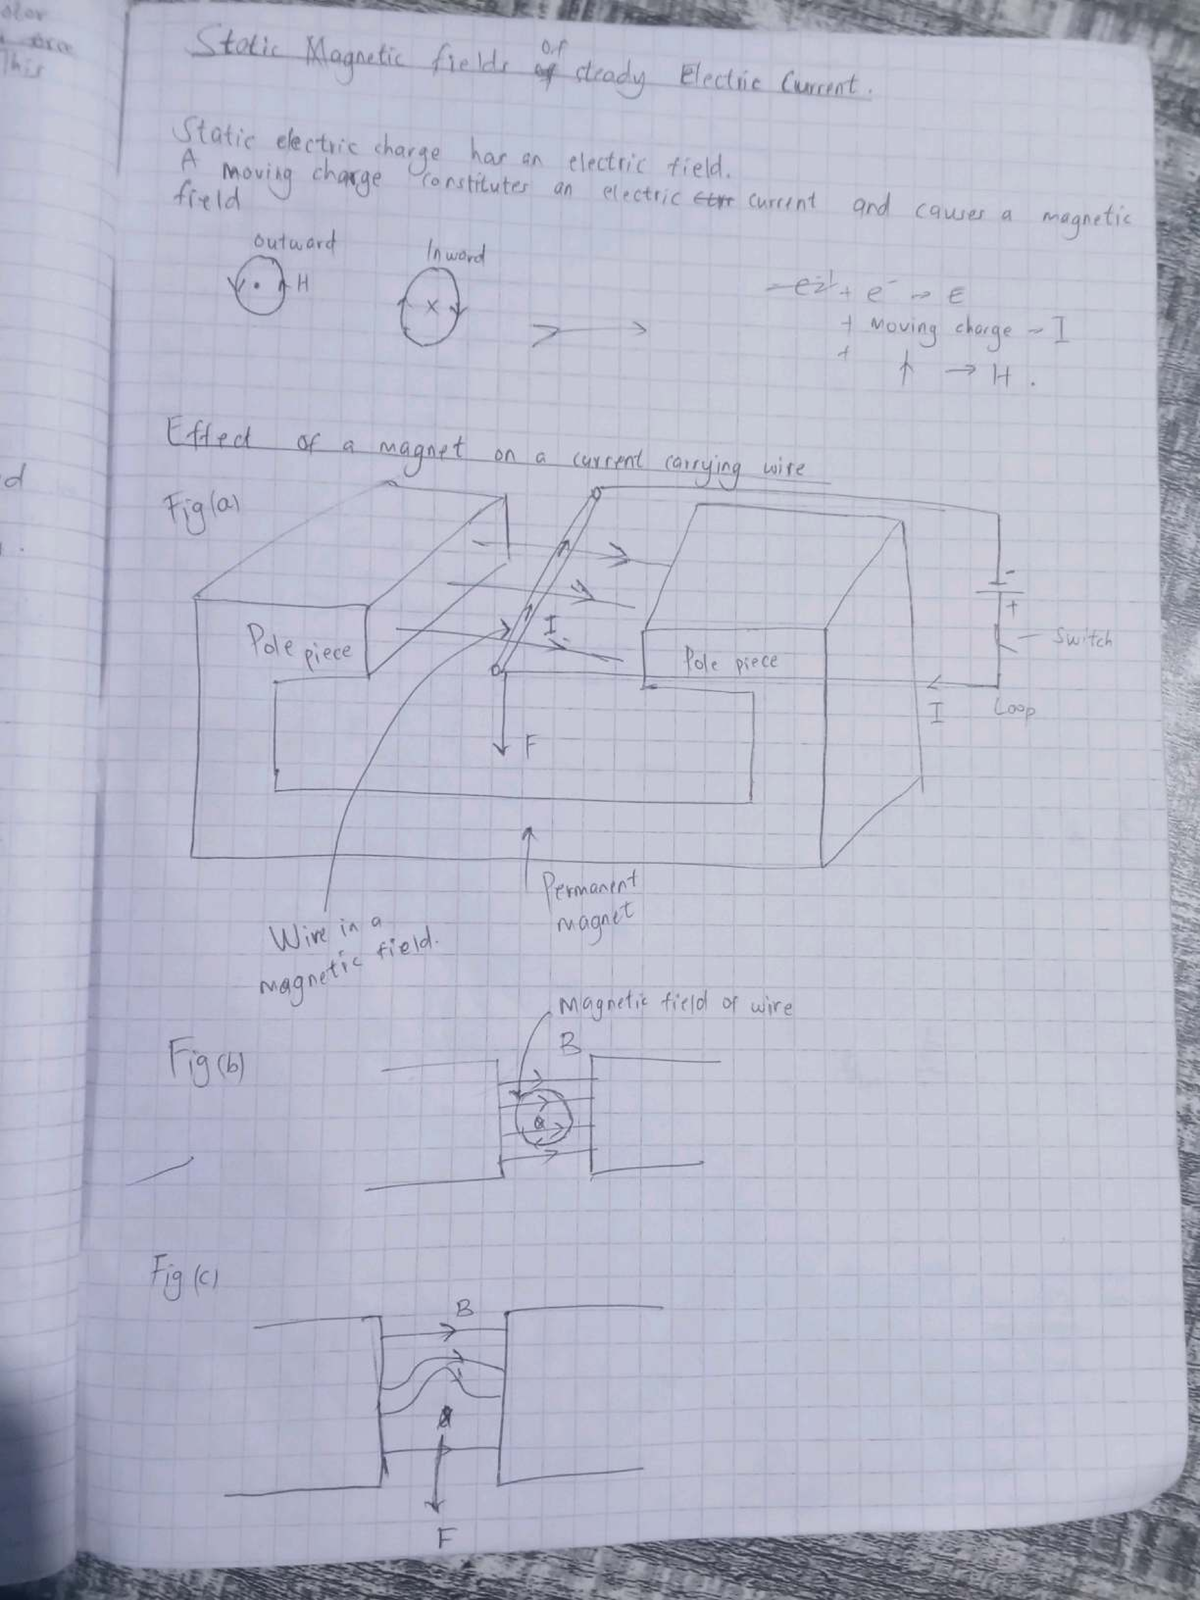 olor
This
d
Static Magnetic fields of steady Electric Current.
Static electric charge has an electric field.
A moving charge constitutes an electric current and causes a magnetic
field
outward
Inward
H
e⁻ → E
+ Moving charge ~ I
+ ↑ → H.
Effect of a magnet on a current carrying wire
Fig(a)
Pole piece
I
Pole piece
-
+
Switch
I
Loop
F
Permanent
magnet
Wire in a
magnetic field.
Magnetic field of wire
Fig(b)
B
Fig(c)
B
F